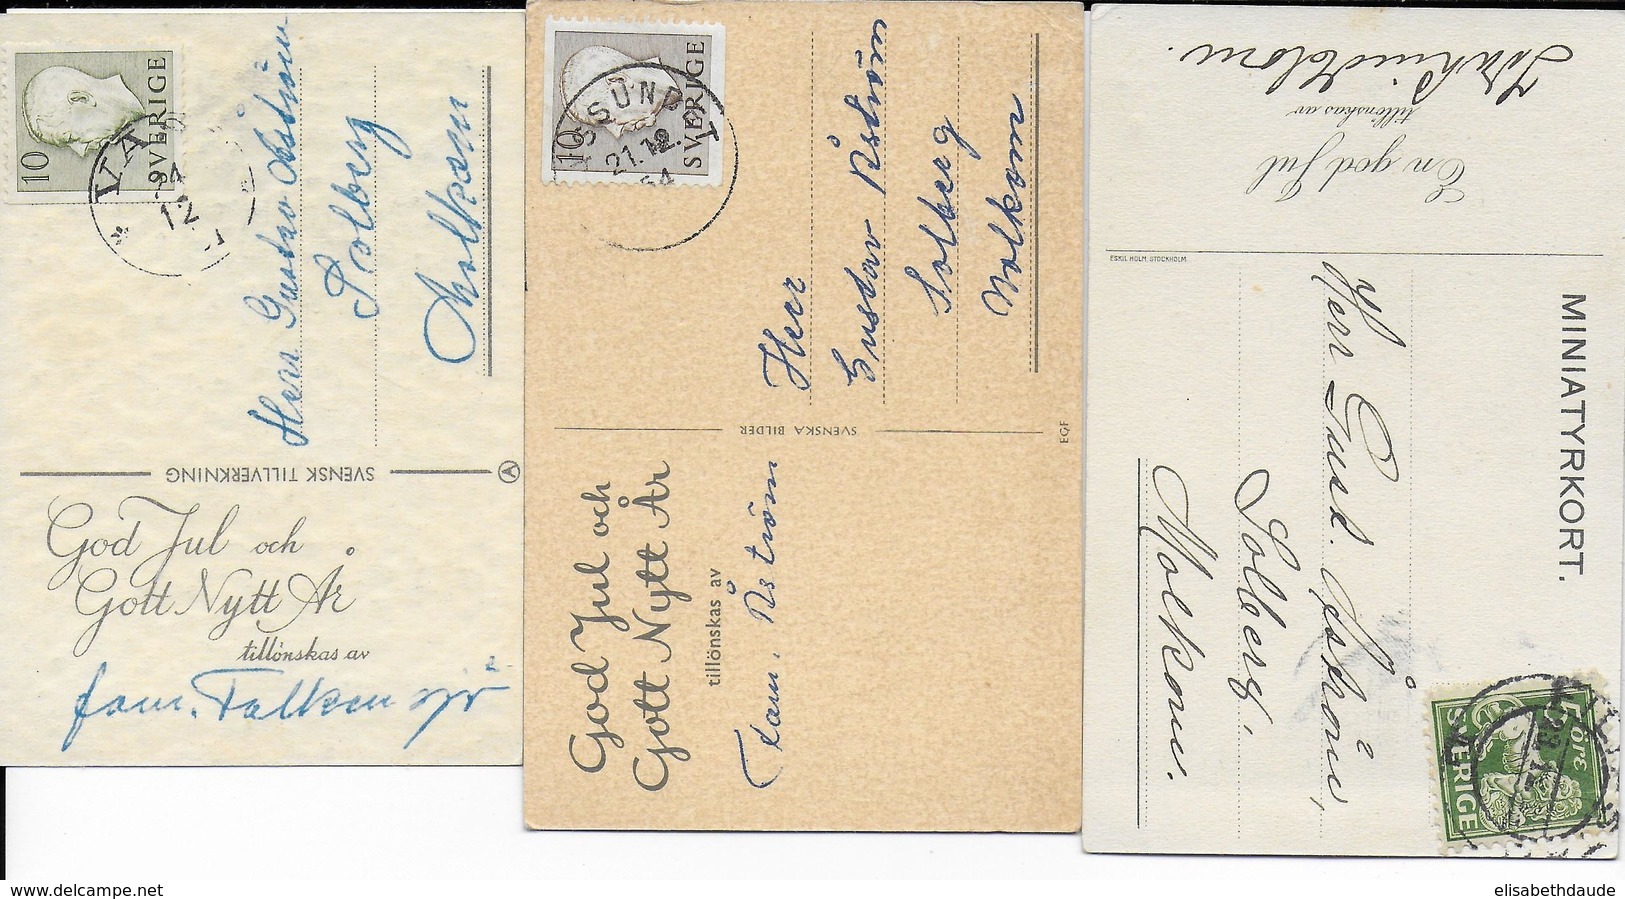 10
SVERIGE
12
Herr Gustav Åström
Solberg
Molkom
SVENSK TILLVERKNING
God Jul och
Gott Nytt År
tillönskas av
fam.
10
SVERIGE
21.12.
54
Herr
Gustav Åström
Solberg
Molkom
SVENSKA BILDER
EGF
God Jul och
Gott Nytt År
tillönskas av
Fam. Åström
En god Jul
tillönskas av
ESKIL HOLM, STOCKHOLM
MINIATYRKORT.
Herr Gust. Åström,
Solberg.
Molkom.
5 FÖRE
SVERIGE
www.delcampe.net
elisabethdaude